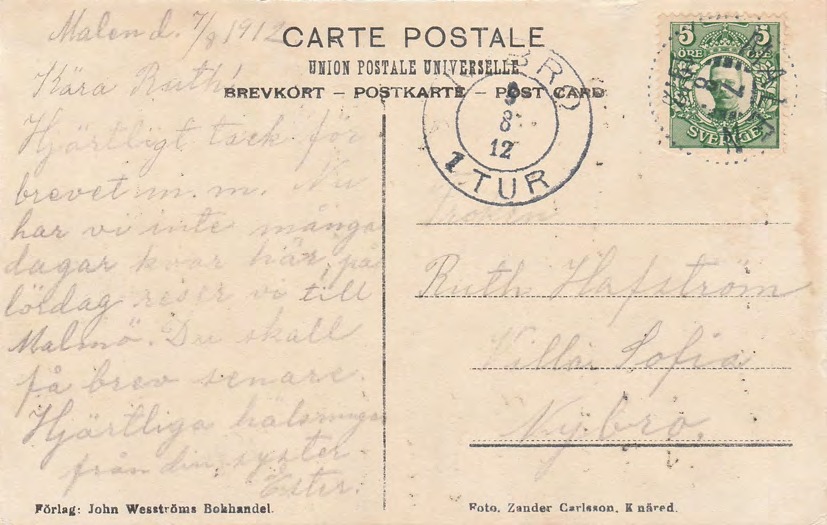 Malen d. 7/8 1912
Kära Ruth!
Hjärtligt tack för
brevet m. m. Nu
har vi inte många
dagar kvar här, på
lördag reser vi till
Malmö. Du skall
få brev senare.
Hjärtliga hälsningar
från din syster
Ester.
CARTE POSTALE
UNION POSTALE UNIVERSELLE
BREVKORT – POSTKARTE – POST CARD
BRO
9
8
12
1 TUR
5 5
ÖRE
SVERIGE
MALEN
7
8
Fröken
Ruth Hafström
Villa Sofia
Nybro.
Förlag: John Wesströms Bokhandel.
Foto. Zander Carlsson, Knäred.